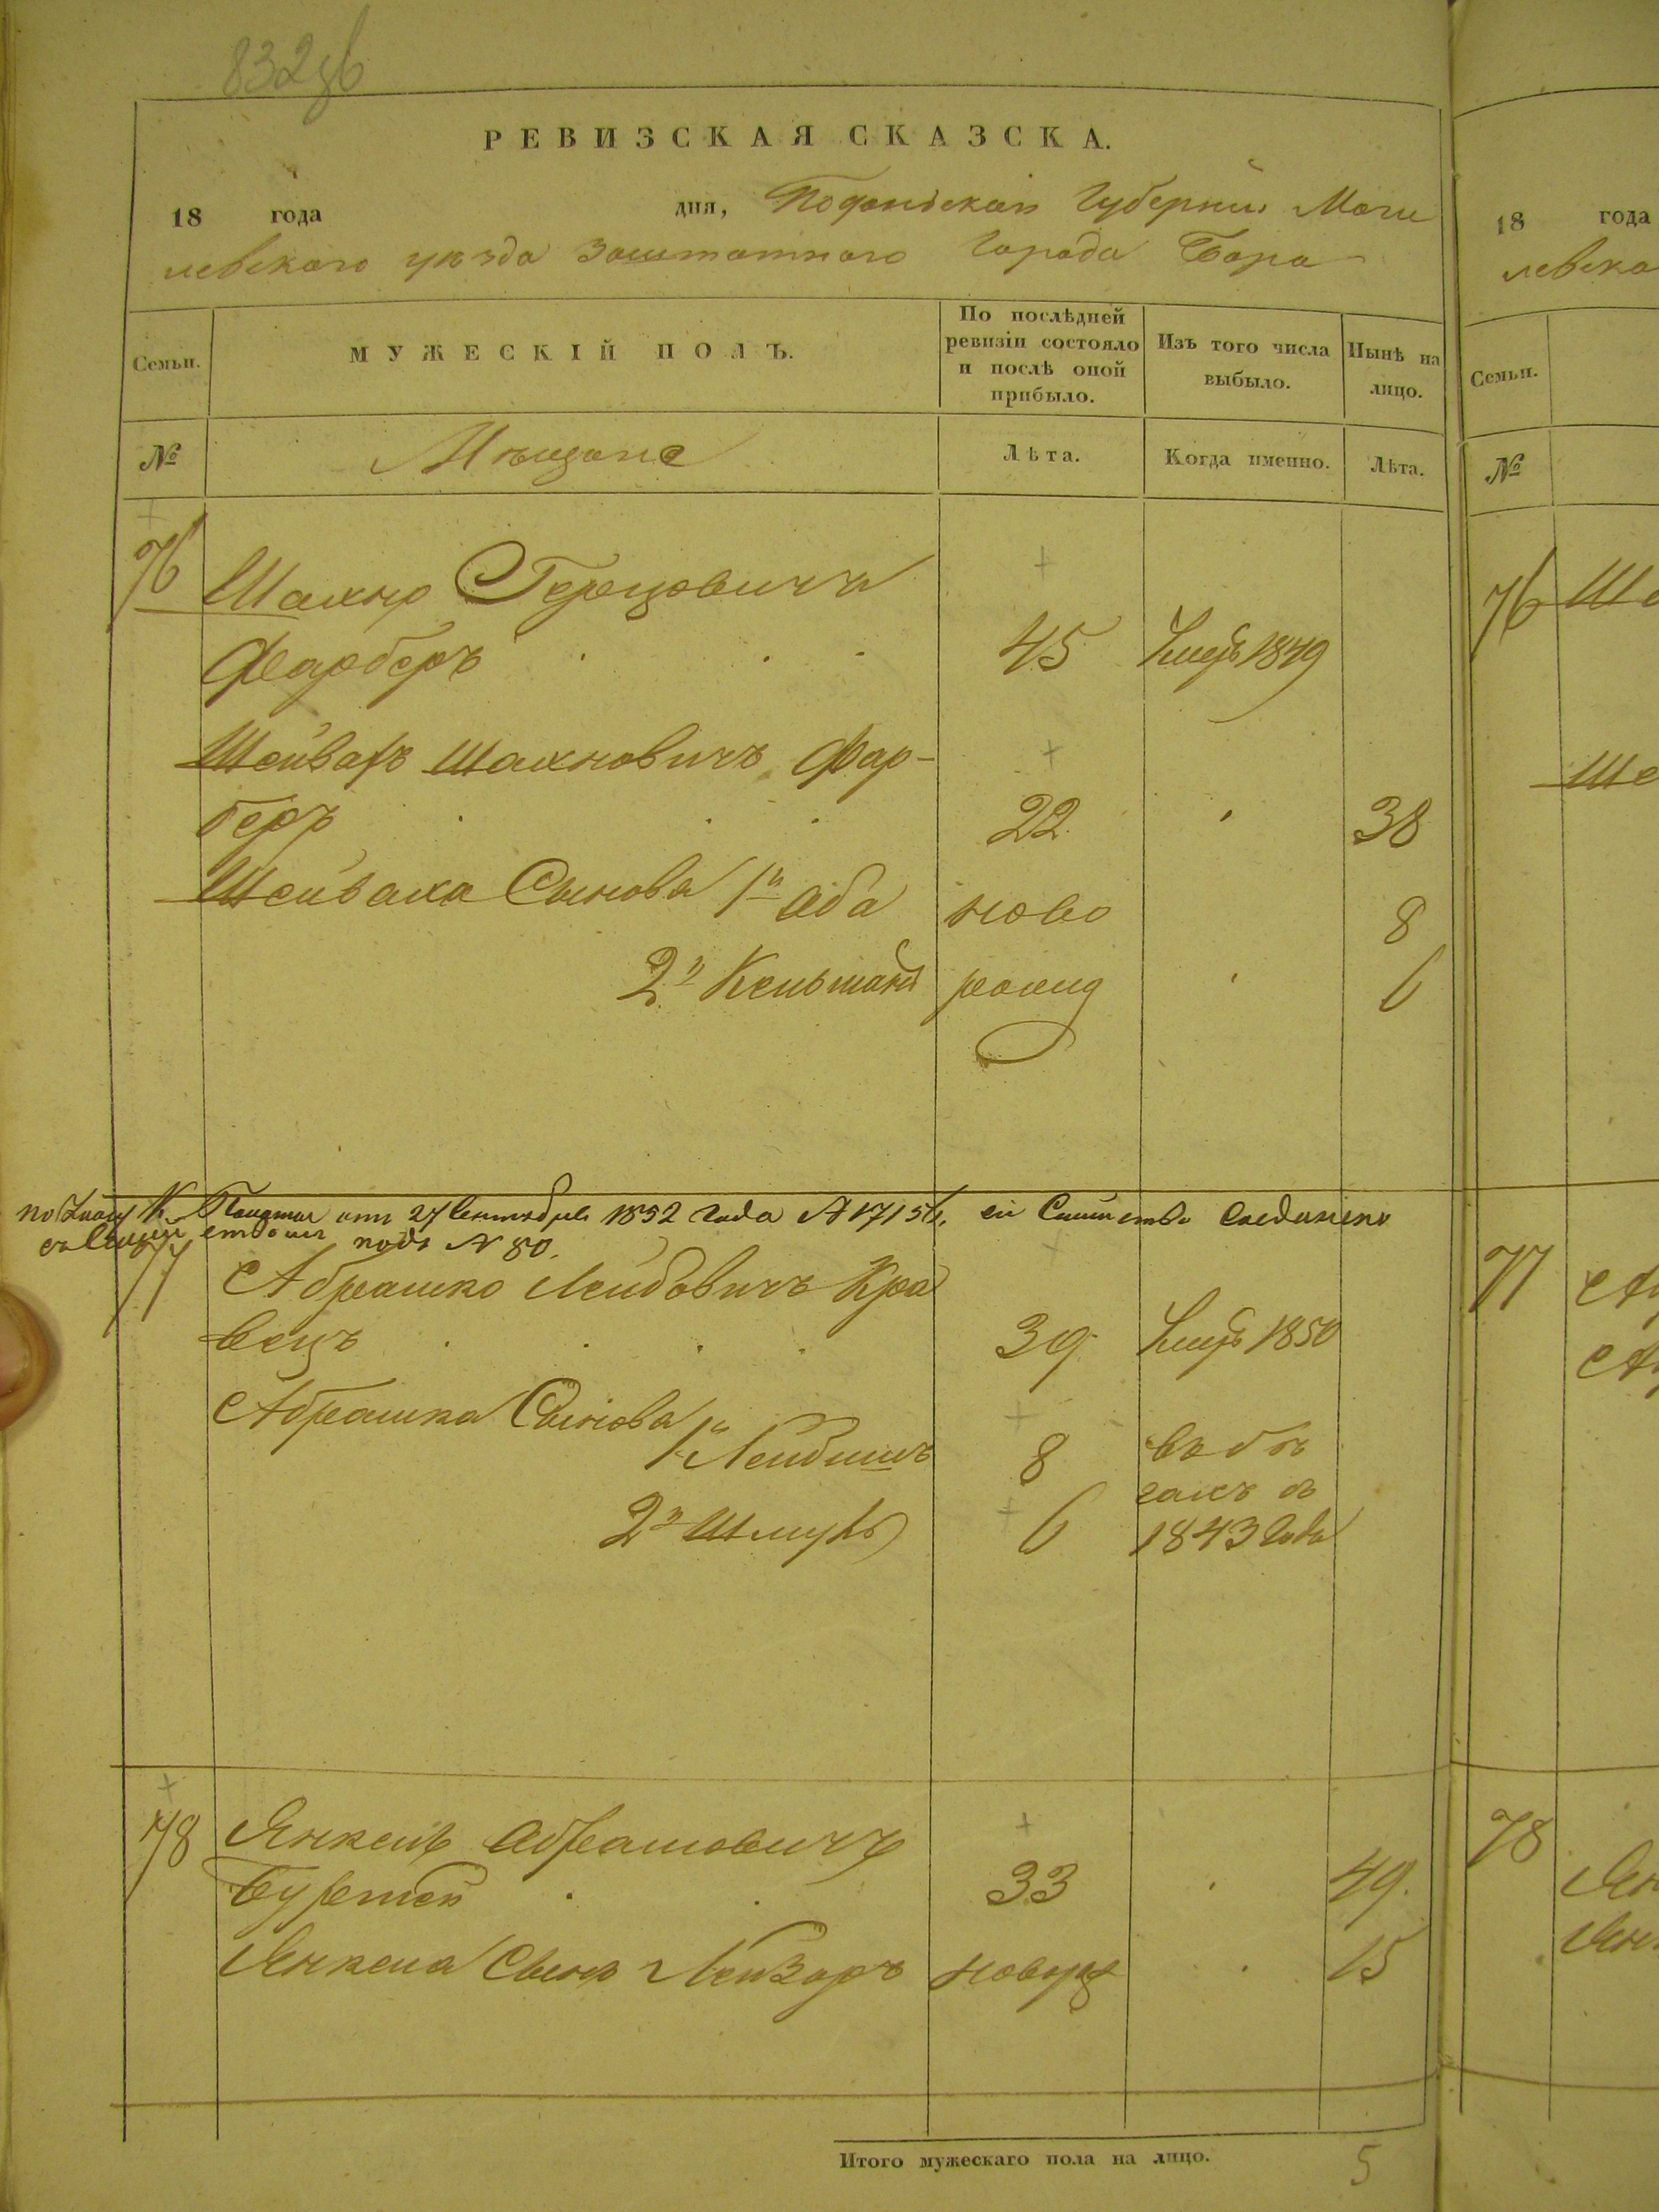 832
РЕВИЗСКАЯ СКАЗСКА.
18 года дня, Подольской Губернiи Моги
левского уѣзда Заштатного Города Бара
Семьи.
МУЖЕСКIЙ ПОЛЪ.
По послѣдней ревизiи состояло и послѣ оной прибыло.
Изъ того числа выбыло.
Нынѣ на лицо.
№ Мѣщане Лѣта. Когда именно. Лѣта.
76 Шахно Герцовичъ
Фарберъ 45 1849
Шейвахъ Шахновичъ Фар-
беръ 22 38
Шейваха Сынова 1й Аба ново 8
2й Кельманъ рожид 6
27 Сентября 1852 Года № 17156, сiе Семейство Соединено
подъ № 80.
77 Абрашко Лейбовичъ Кра
вецъ 39 1850
Абрашка Сынова
1й Лейбишъ 8 въ бѣ
2й Шмуль 6 гахъ съ
1843 Года
78 Янкель Абрашовичъ
33 49.
Янкеля Сынъ Лейзоръ новорож 15
Итого мужескаго пола на лицо. 5
18 года
левско
Семьи.
№
76 Ша
Ше
77 Аб
Аб
78
Ян
Янк